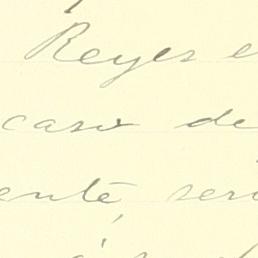 Reyes e
caso de
ente, seri